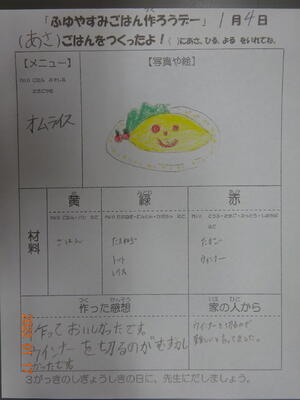 「ふゆやすみごはん作ろうデー」 1月4日
(あさ)ごはんをつくったよ！( )にあさ、ひる、よる をいれてね。
【メニュー】
【写真や絵】
オムライス
材料
黄
緑
赤
ごはん
たまねぎ
トマト
レタス
たまご
ウィンナー
作った感想
つく かんそう
家の人から
いえ ひと
作っておいしかったです
ウインナーを切るのがむずかし
かったです
ウインナーを切るので
難しいと言ってました。
3がっきのしぎょうしきの日に、先生にだしましょう。